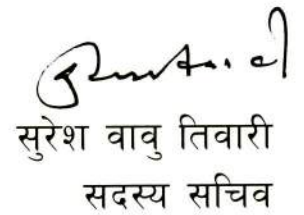 सुरेश वावु तिवारी
सदस्य सचिव